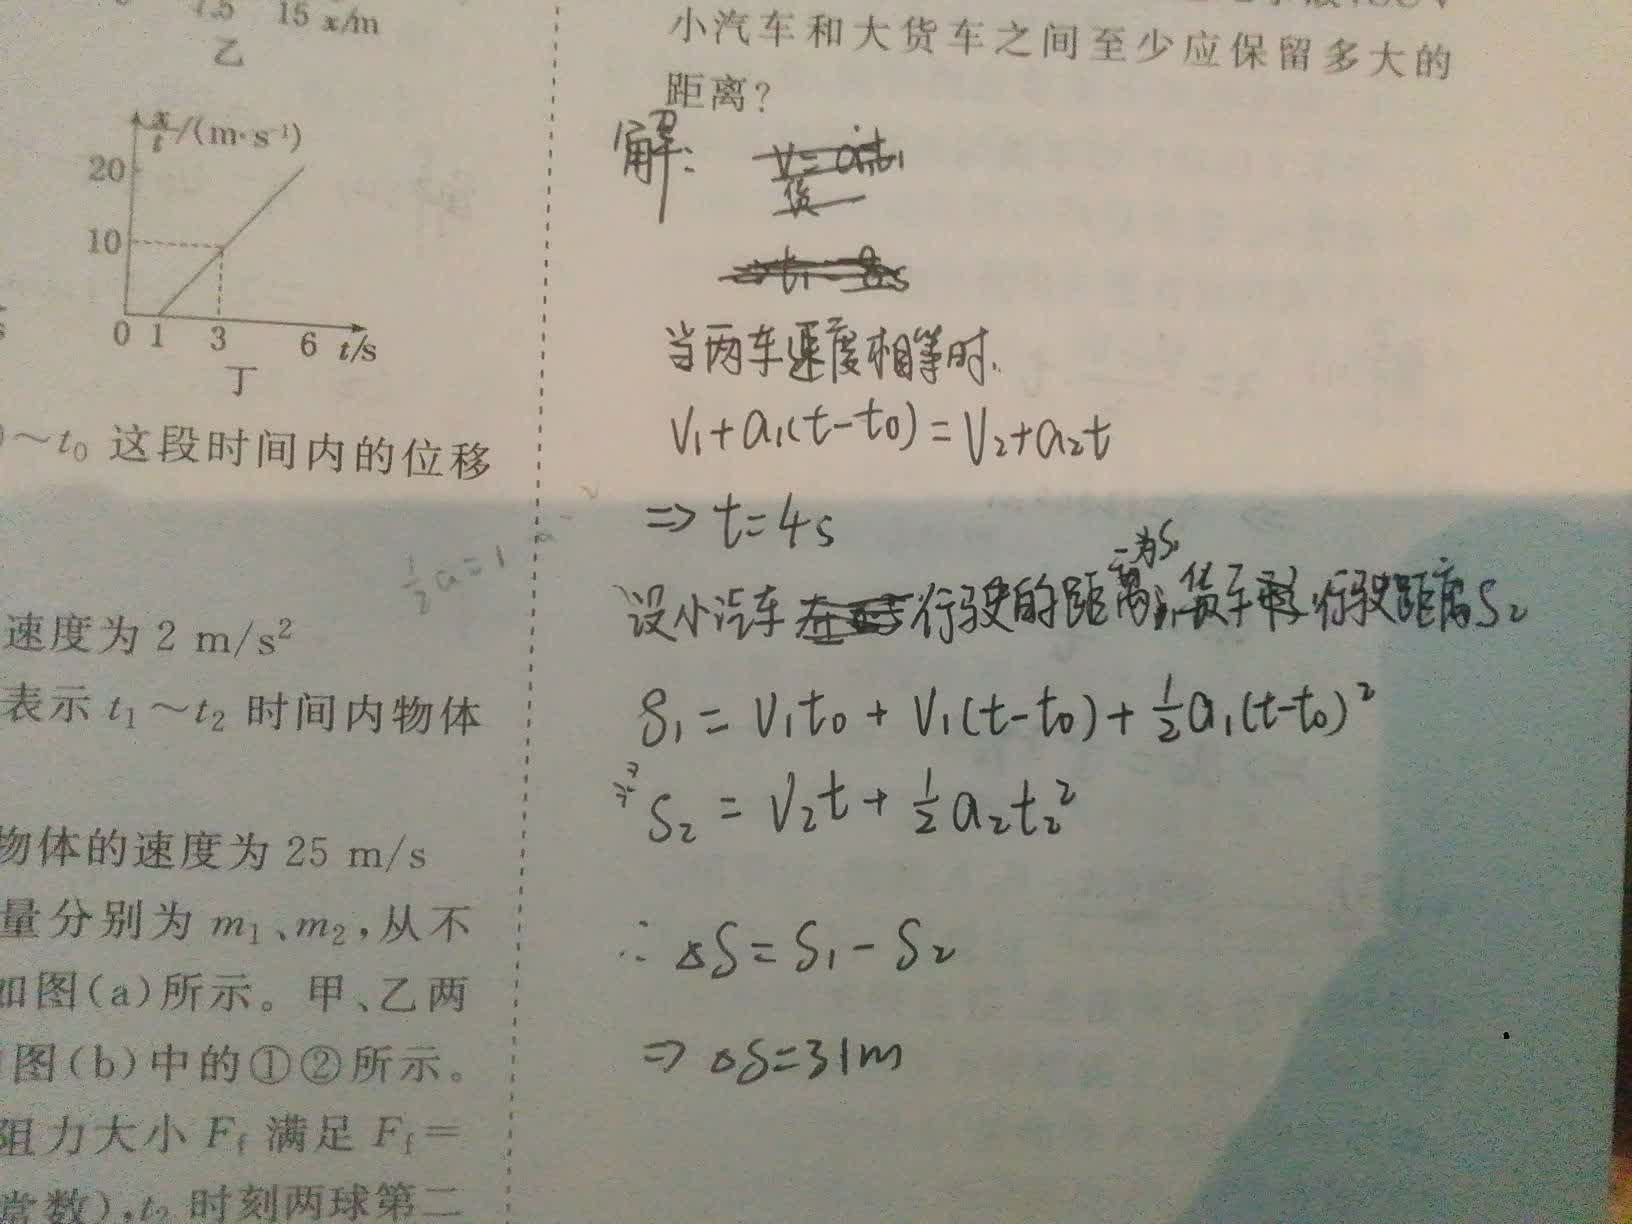 7.5 15 x/m
乙
x/t/(m·s⁻¹)
20
10
0 1 3 6 t/s
丁
～t₀ 这段时间内的位移
½a=1
速度为 2 m/s²
表示 t₁～t₂ 时间内物体
物体的速度为 25 m/s
量分别为 m₁、m₂,从不
如图(a)所示。甲、乙两
图(b)中的①②所示。
阻力大小 F_f 满足 F_f=
常数),t₂ 时刻两球第二
小汽车和大货车之间至少应保留多大的
距离?
解:
当两车速度相等时.
V₁+a₁(t-t₀)=V₂+a₂t
⇒ t=4s
设小汽车行驶的距离为S₁,货车行驶距离S₂
S₁=V₁t₀+V₁(t-t₀)+½a₁(t-t₀)²
S₂=V₂t+½a₂t₂²
∴ △S=S₁-S₂
⇒ △S=31m